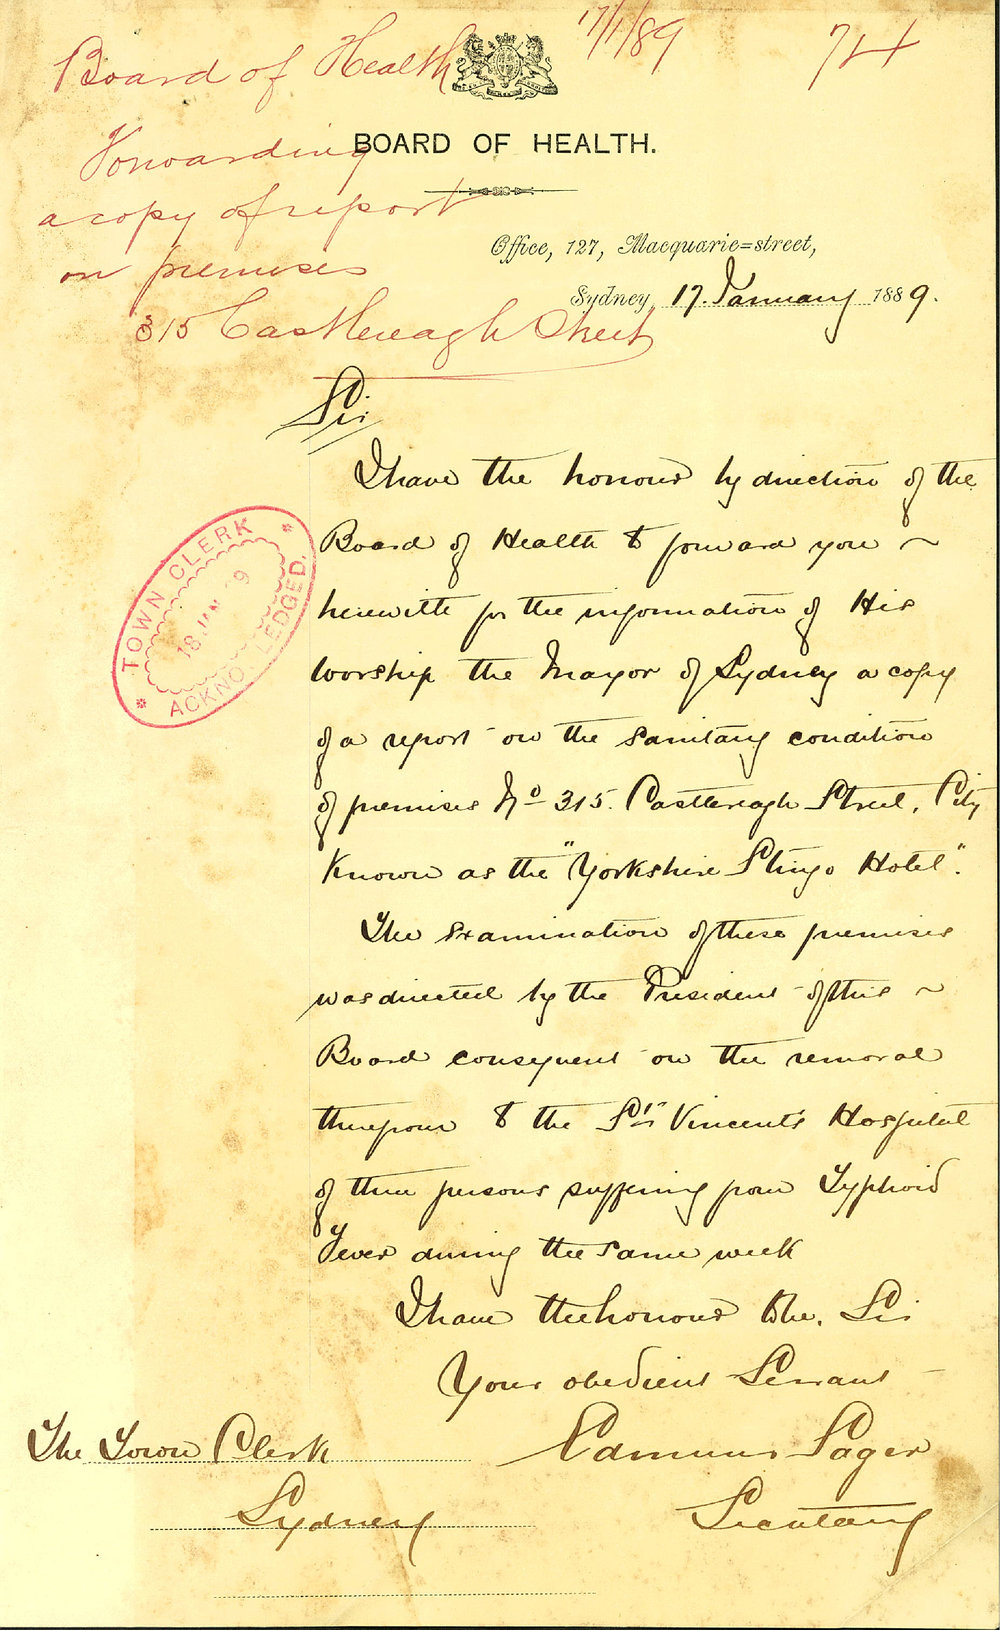 Board of Health 17/1/89 74
BOARD OF HEALTH.
Forwarding
a copy of report
on premises
315 Castlereagh Street
Office, 127, Macquarie=street,
Sydney, 17. January 1889.
Sir
I have the honour by direction of the
Board of Health to forward you ~
herewith for the information of His
Worship the Mayor of Sydney a copy
of a report on the sanitary condition
of premises No 315. Castlereagh Street, City
Known as the "Yorkshire Stingo Hotel".
The Examination of these premises
was directed by the President of this ~
Board consequent on the removal
therefrom to the St. Vincent's Hospital
of three persons suffering from Typhoid
Fever during the same week
I have the honour to be, Sir
Your obedient Servant
Edmund Sager
Secretary
The Town Clerk
Sydney
* TOWN CLERK *
18 JAN 89
ACKNOWLEDGED.